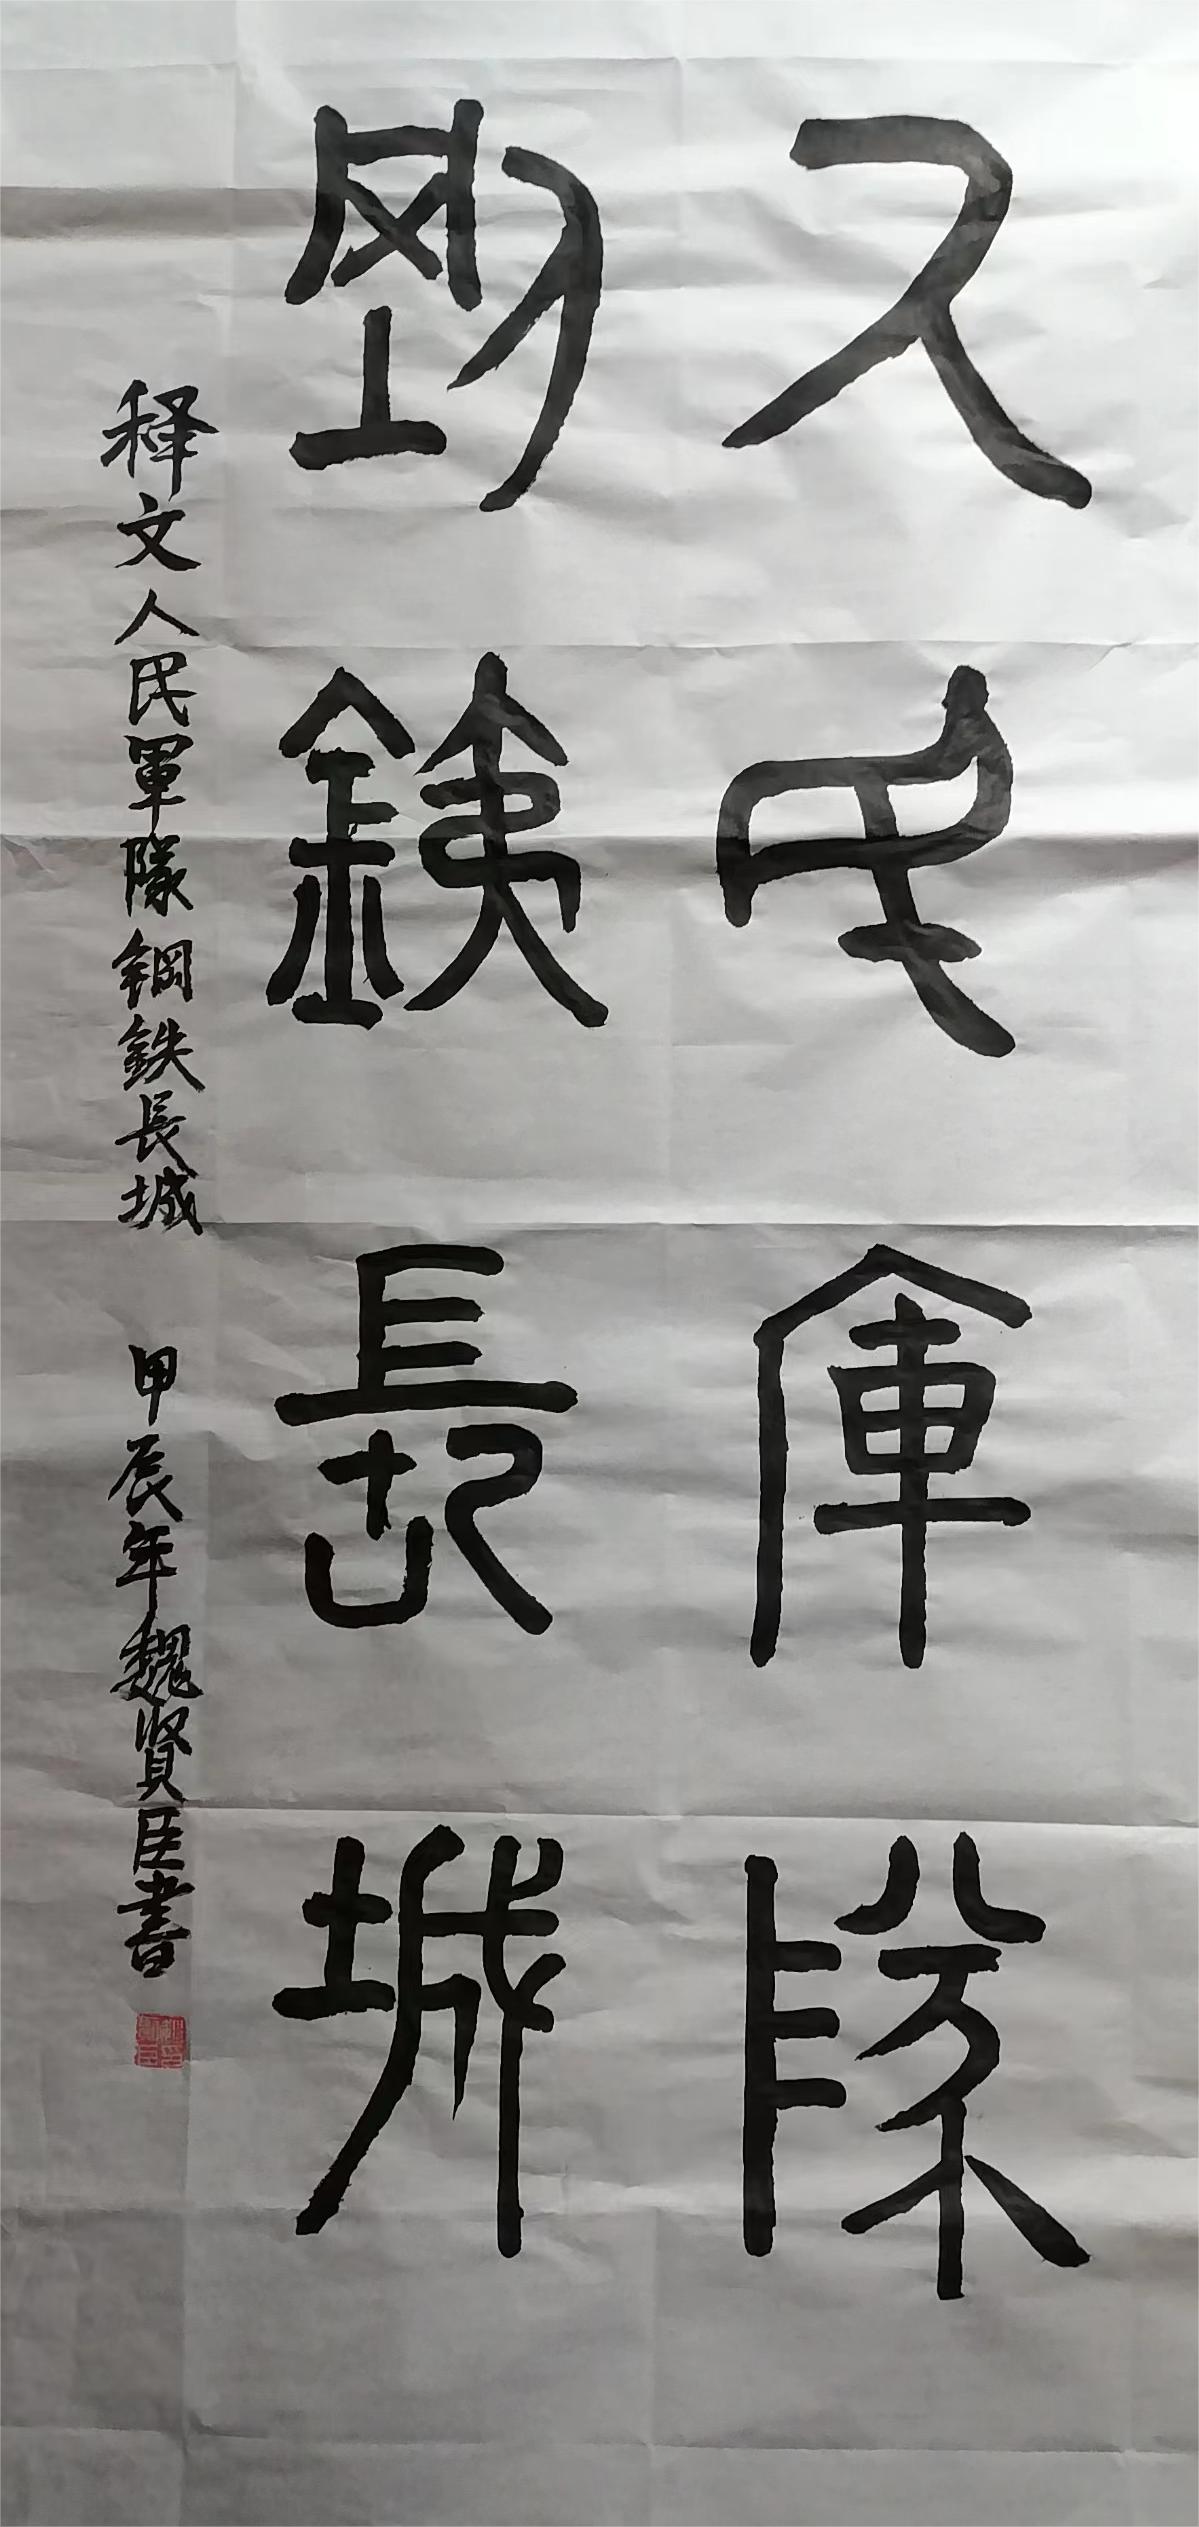 人民軍隊
鋼鉄長城
释文人民軍隊鋼鉄長城 甲辰年魏賢臣書